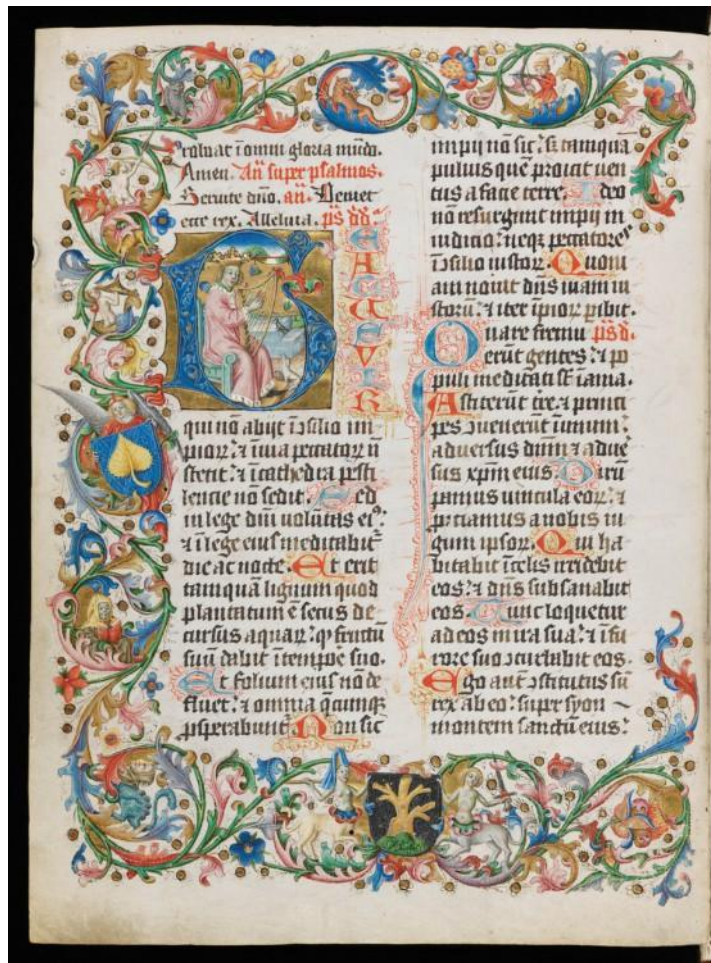 roborat ī omni gloria mūdo.
Amen. Añ super psalmos.
Servite dño. añ. Beniet
ecce rex, Alleluia. ps dd
B
EATUS VIR
qui nō abijt ī ɔsilio im
pioꝝ ⁊ ī via peccatoꝝ ñ
stetit ⁊ ī cathedra pesti
lencie nō sedit. Sed
in lege dñi voluntas ei⁹.
⁊ ī lege eius meditabit̃
die ac nocte. Et erit
tamquā lignum quod
plantatum ē secus de
cursus aquaꝝ qᵒ fructū
suū dabit ī tempoē suo.
Et folium eius nō de
fluet. ⁊ omnia q̄cumq̨
ꝓsperabunt̃. Non sic
impij nō sic. sꝫ tamqua
pulvis quē proicit uen
tus a facie terre. Ideo
nō resurgunt impij in
iudicio. neqꝫ peccatores
ī ɔsilio iustoꝝ. Quoni
am novit dñs viam iu
storū. ⁊ iter īpioꝝ ꝑibit.
Quare fremu ps d̄.
erūt gentes ⁊ po
puli meditati sū īania.
Astiterūt tr̄e. ⁊ princi
pes ɔuenerūt ī unum.
adversus dñm ⁊ adue
sus xp̄m eius. Dirū
pamus vincula eoꝝ. ⁊
ꝓiciamus a nobis iu
gum ipsoꝝ. Qui ha
bitabit ī celis irridebit
eos. ⁊ dñs subsanabit
eos. Tunc loquetur
ad eos in ira sua. ⁊ ī fu
rore suo ɔturbabit eos.
Ego aut̄ ɔstitutus sū
rex ab eo. super syon
montem sanctū eius.